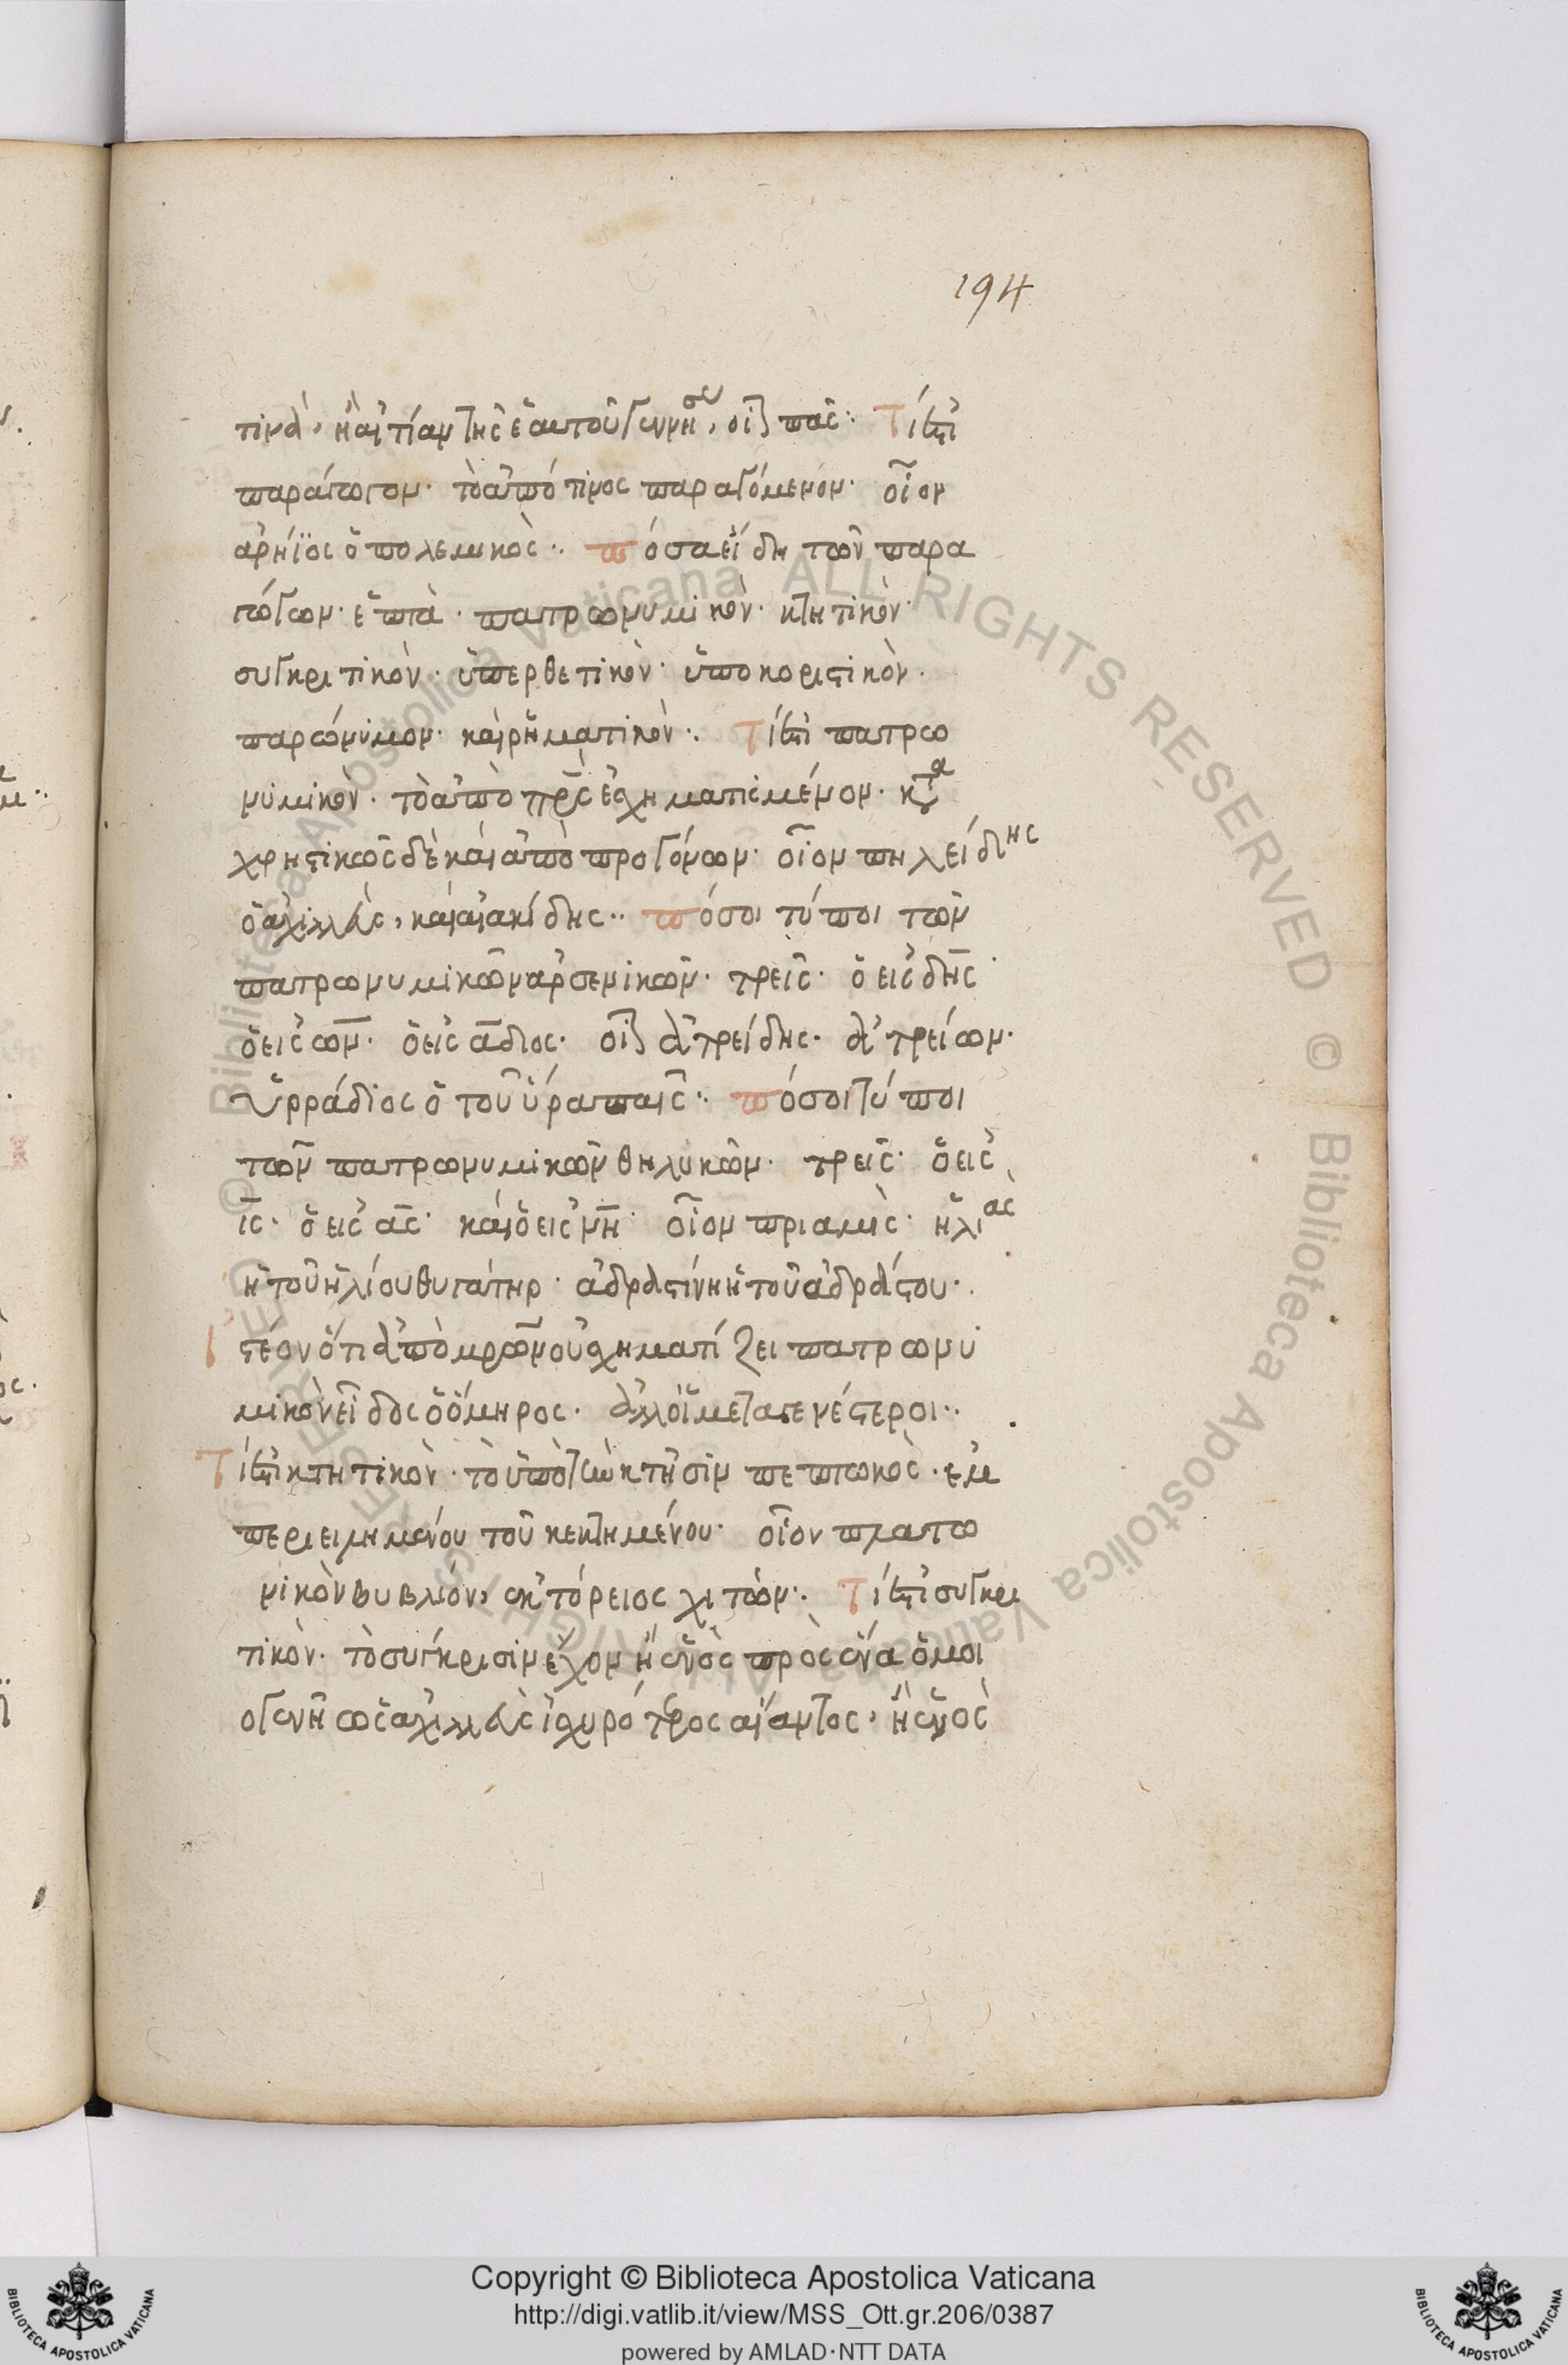 194
τινὰ, ἢ αἰτίαν τῆς ἑαυτοῦ γεννήσεως, οἷον παῖς· Τί ἐστι
παράγωγον· τὸ ἀπό τινος παραγόμενον· οἷον
ἀρήϊος ὁ πολεμικὸς·· πόσα εἴδη τῶν παρα
γώγων· ἑπτὰ· πατρωνυμικὸν· κτητικὸν·
συγκριτικὸν· ὑπερθετικὸν· ὑποκοριστικὸν·
παρώνυμον· καὶ ῥηματικὸν·. Τί ἐστὶ πατρω
νυμικὸν· τὸ ἀπὸ πρς ἐσχηματισμένον· κατα
χρηστικῶς δὲ καὶ ἀπὸ προγόνων· οἷον πηλείδης
ὁ ἀχιλλεὺς, καὶ αἰακίδης·· πόσοι τύποι τῶν
πατρωνυμικῶν ἀρσενικῶν· τρεῖς· ὁ εἰς δης·
ὁ εἰς ων· ὁ εἰς αδιος· οἷον ἀτρείδης· ἀτρείων·
ὑρράδιος ὁ τοῦ ὕρα παῖς·· πόσοι τύποι
τῶν πατρωνυμικῶν θηλυκῶν· τρεῖς· ὁ εἰς
ις· ὁ εἰς ας· καὶ ὁ εἰς νη· οἷον πριαμὶς· ἡλιὰς
ἡ τοῦ ἡλίου θυγάτηρ· ἀδραστίνη ἡ τοῦ ἀδράστου·
Ἰστέον ὅτι ἀπὸ μρων οὐ σχηματίζει πατρωνυ
μικὸν εἶδος ὁ ὅμηρος· ἀλλ οἱ μεταγενέστεροι··
Τί ἐστι κτητικὸν· τὸ ὑπὸ τὴν κτῆσιν πεπτωκὸς· ἐμ
περιειλημμένου τοῦ κεκτημένου· οἷον πλατω
νικὸν βυβλίον, ἑκτόρειος χιτών· Τί ἐστι συγκρι
τικὸν· τὸ σύγκρισιν ἔχον ἢ ἑνὸς πρὸς ἕνα ὁμοι
ογενῆ ὡς ἀχιλλεὺς ἰσχυρότερος αἴαντος, ἢ ἑνὸς
Copyright © Biblioteca Apostolica Vaticana
http://digi.vatlib.it/view/MSS_Ott.gr.206/0387
powered by AMLAD·NTT DATA
BIBLIOTECA APOSTOLICA VATICANA
BIBLIOTECA APOSTOLICA VATICANA
© Biblioteca Apostolica Vaticana ALL RIGHTS RESERVED © Biblioteca Apostolica Vaticana ALL RIGHTS RESERVED